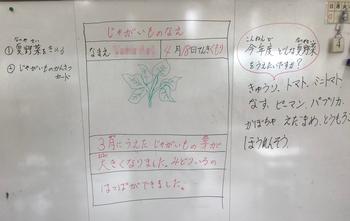 なつやさい
①夏野菜をきめよう
②じゃがいものかんさつ
カード
じゃがいものなえ
なまえ
4月18日てんき(くもり)
3月にうえたじゃがいもの芽が
大きくなりました。みどりいろの
はっぱができました。
こんねんど
今年度どんな夏野菜
をうえたいですか?
きゅうり、トマト、ミニトマト
なす、ピーマン、パプリカ
かぼちゃ、えだまめ、とうもろこし
ほうれんそう